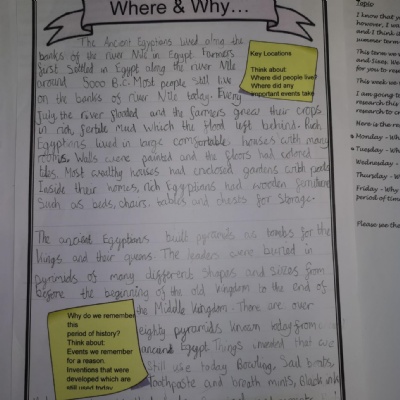 Where & Why...
The Ancient Egyptians lived alma the
banks of the river Nile in Egypt. Farmers
first settled in Egypt along the river Nile
around 5000 B.C. Most people still live
on the banks of river Nile today. Every
July the river flooded and the farmers grew their crops
in rich, fertile mud which the flood left behind. Rich
Egyptians lived in large comfortable houses with many
rooms. Walls were painted and the floors had colored
tiles. Most wealthy houses had enclosed gardens with pools
Inside their homes, rich Egyptians had wooden furniture
Such as beds, chairs, tables and chests for storage.
Key Locations
Think about:
Where did people live?
Where did any
important events take
The ancient Egyptians built pyramids as tombs for the
kings and their queens. The leaders were buried in
pyramids of many different shapes and sizes from
before the beginning of the old kingdom to the end of
the Middle Kingdom. There are over
eighty pyramids known today from
ancient Egypt. Things invented that are
still use today Bowling, Sail boats,
toothpaste and breath mints, Black ink
Why do we remember
this
period of history?
Think about:
Events we remember
for a reason.
Inventions that were
developed which are
still used today
Topic
I know that
however, I
and I think it
summer term
This term we
and Sives. We
for you to rese
This week we
I am going t
research this
research to cr
Here is the re
Monday - Wh
Tuesday - Wh
Wednesday -
Thursday - W
Friday - Why
period of time
Please see the